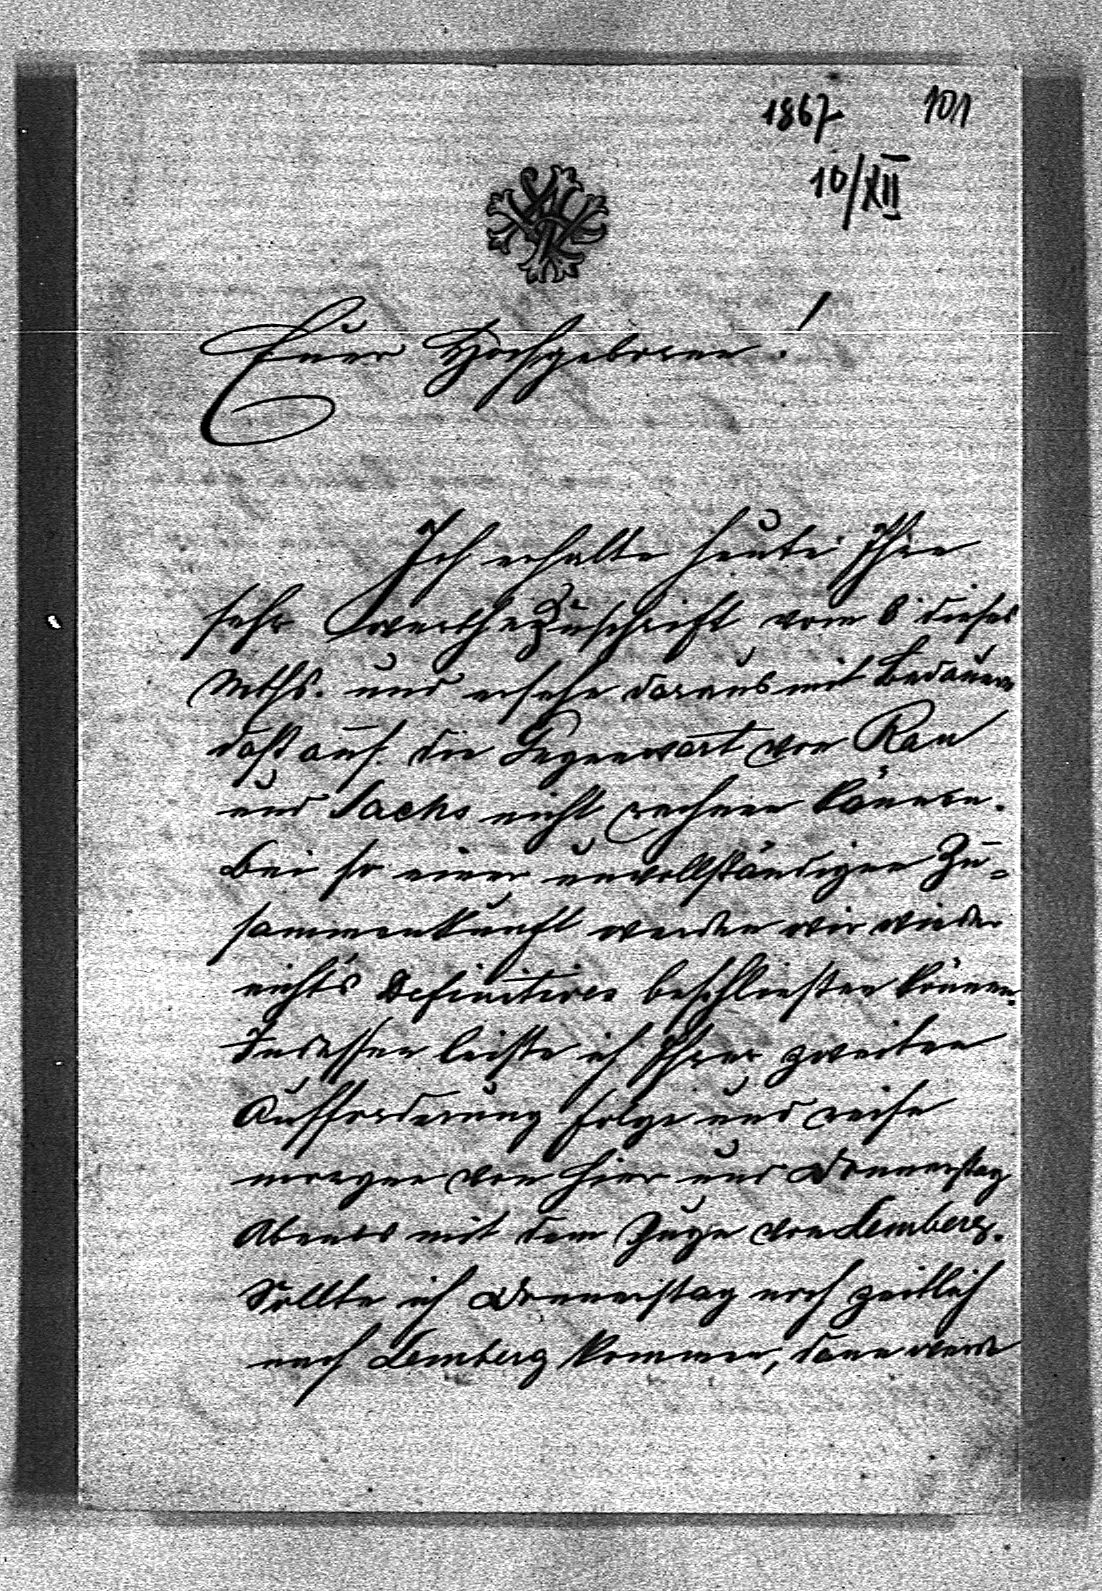 1867 101
10/XII
Euer Hochgeboren!
Ich erhalte heute Ihre
sehr werthe Zuschrift vom 6 dieses
Mths. und ersehe daraus mit Bedauern
daß auf die Gegenwart von Rau
und Sachs nicht rechnen können.
Bei so einer unvollständigen Zu-
sammenkunft werden wir wieder
nichts Definitives beschließen können.
Indessen leiste ich Ihrer zweiten
Aufforderung folge und reise
morgen von hier und Donnerstag
Abends mit dem Zuge von Lemberg.
Sollte ich Donnerstag noch zeitlich
nach Lemberg kommen, dann werde